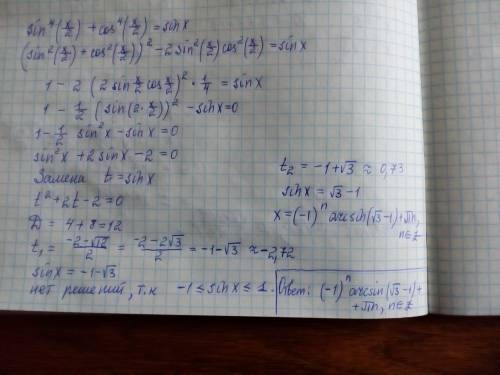 sin⁴(x/2) + cos⁴(x/2) = sinx
(sin²(x/2) + cos²(x/2))² - 2sin²(x/2)cos²(x/2) = sinx
1 - 2 (2 sin x/2 cos x/2)² · 1/4 = sinx
1 - 1/2 (sin(2·x/2))² - sinx=0
1 - 1/2 sin²x - sinx = 0
sin²x + 2sinx - 2 = 0
Замена t = sinx
t² + 2t - 2 = 0
D = 4 + 8 = 12
t₁ = (-2-√12)/2 = (-2-2√3)/2 = -1-√3 ≈ -2,72
sinx = -1-√3
нет решений, т.к -1 ≤ sinx ≤ 1.
t₂ = -1+√3 ≈ 0,73
sinx = √3-1
x = (-1)ⁿ arcsin(√3-1)+πn,
n∈Z
Ответ: (-1)ⁿ arcsin(√3-1)+
+πn, n∈Z